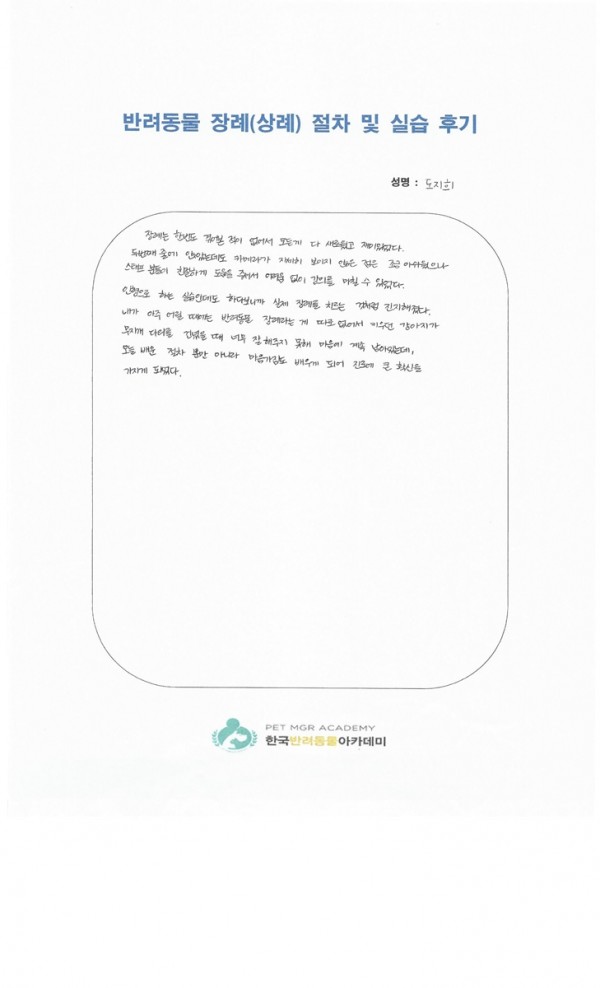 반려동물 장례(상례) 절차 및 실습 후기
성명 : 도지희
장례는 한번도 겪어본 적이 없어서 모든게 다 새로웠고 재미있었다.
두번째 줄에 앉았는데도 카메라가 자세히 보이지 않은 점은 조금 아쉬웠으나
스태프 분들이 친절하게 도움을 주셔서 어려움 없이 강의를 마칠 수 있었다.
인형으로 하는 실습인데도 하다보니까 실제 장례를 치르는 것처럼 진지해졌다.
내가 아주 어릴 때에는 반려동물 장례라는 게 따로 없어서 키우던 강아지가
무지개 다리를 건넜을 때 너무 잘 해주지 못해 마음에 계속 남아있는데,
오늘 배운 절차 뿐만 아니라 마음가짐도 배우게 되어 진로에 큰 확신을
가지게 되었다.
PET MGR ACADEMY
한국반려동물아카데미